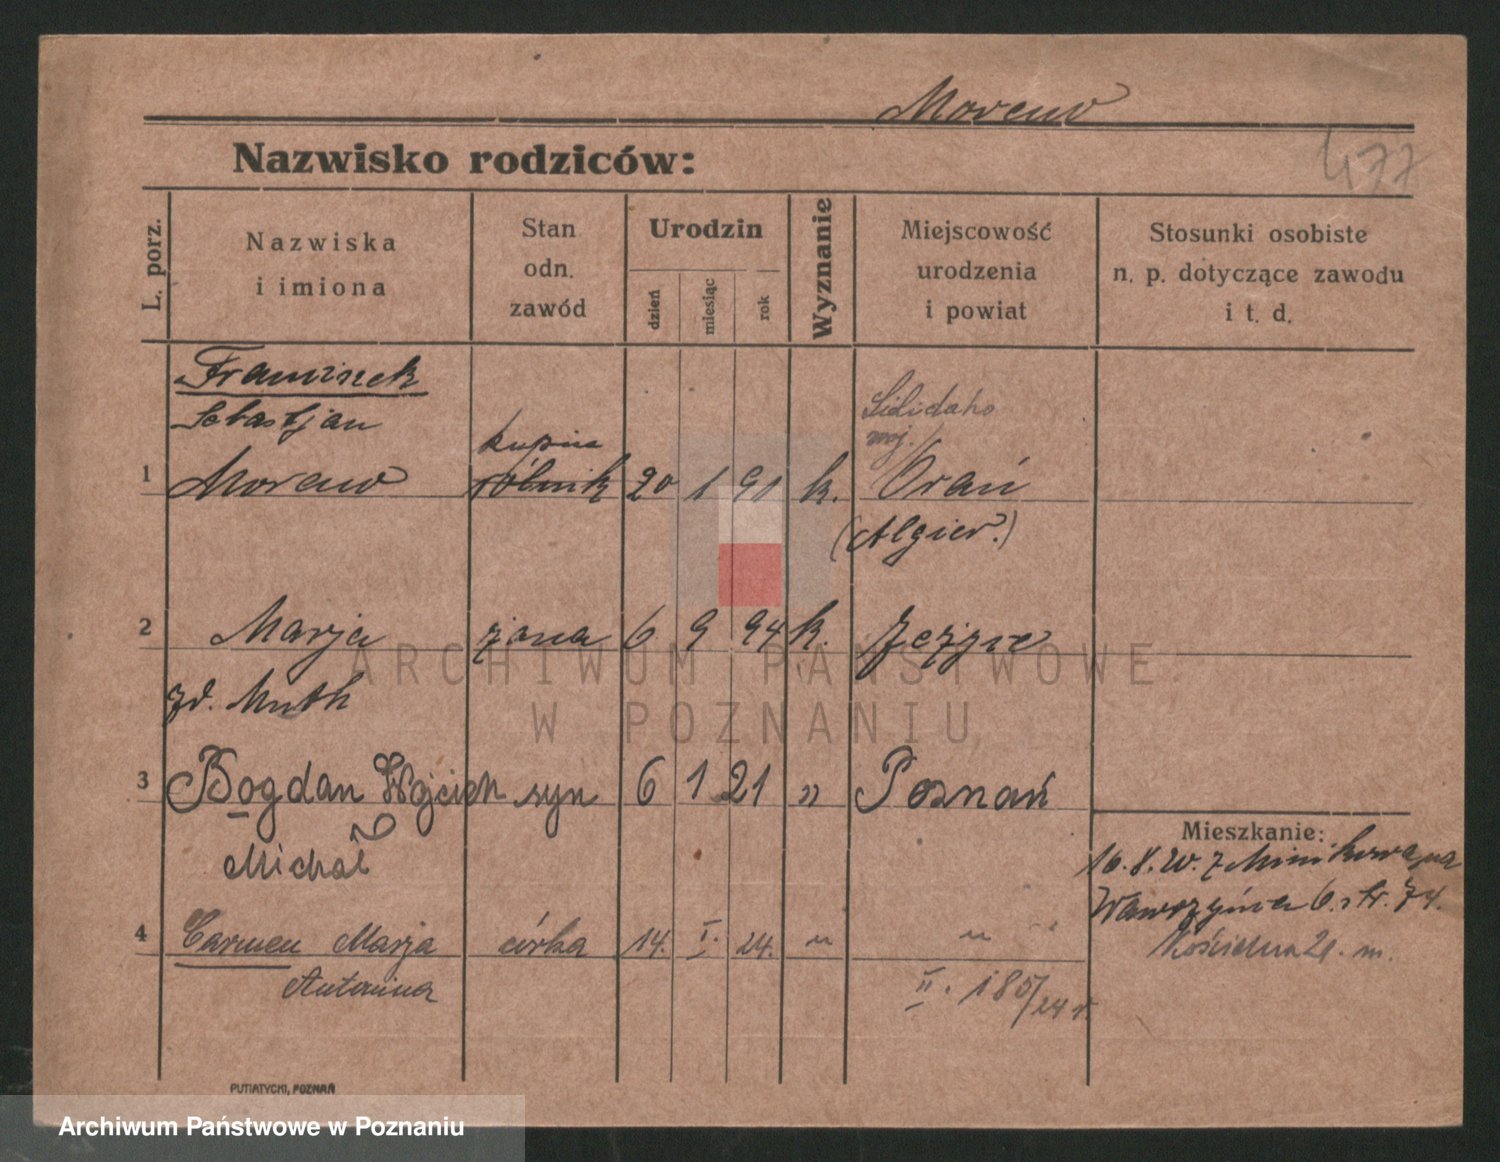 Moreno
Nazwisko rodziców:
477
L. porz.
Nazwiska
i imiona
Stan
odn.
zawód
Urodzin
dzień
miesiąc
rok
Wyznanie
Miejscowość
urodzenia
i powiat
Stosunki osobiste
n. p. dotyczące zawodu
i t. d.
Franciszek
Sebastjan
kupiec
Sididaho
1 Moreno rólnik 20 1 91 k. Orań
(Algier.)
2 Marja żona 6 9 94 k. Jeżyce
zd. Muth
3 Bogdan Wojciech syn 6 1 21 " Poznań
Michał
Mieszkanie:
16.8.20. z Minikowa na
Wawrzyńca 6. str. 74.
4 Carmen Marja córka 14. I. 24. " "
Kościelna 21. m.
Antonina
II. 185/24 r.
PUTIATYCKI, POZNAŃ
ARCHIWUM PAŃSTWOWE
W POZNANIU
Archiwum Państwowe w Poznaniu